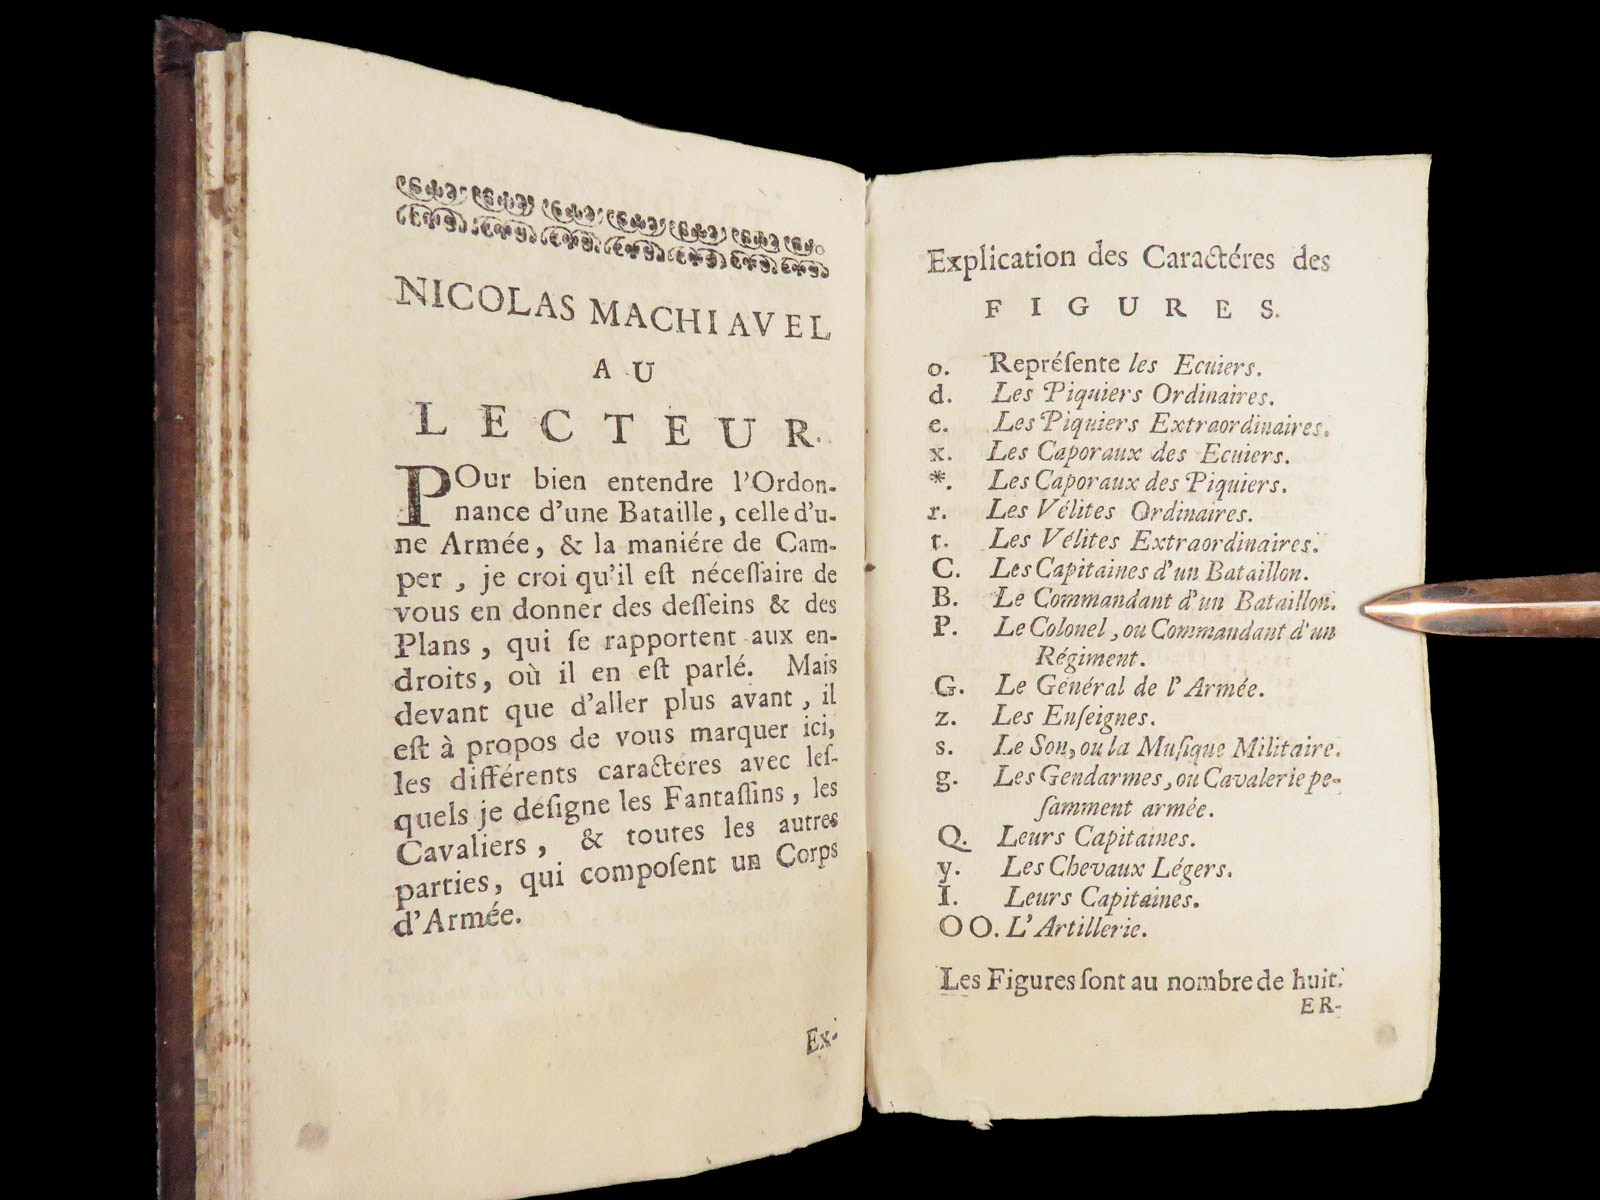 NICOLAS MACHIAVEL
AU
LECTEUR.
POur bien entendre l'Ordon-
nance d'une Bataille, celle d'u-
ne Armée, & la maniére de Cam-
per, je croi qu'il eſt néceſſaire de
vous en donner des deſſeins & des
Plans, qui ſe rapportent aux en-
droits, où il en eſt parlé. Mais
devant que d'aller plus avant, il
eſt à propos de vous marquer ici,
les différents caractéres avec leſ-
quels je déſigne les Fantaſſins, les
Cavaliers, & toutes les autres
parties, qui compoſent un Corps
d'Armée.
Ex-
Explication des Caractéres des
FIGURES.
o. Repréſente les Ecuiers.
d. Les Piquiers Ordinaires.
e. Les Piquiers Extraordinaires.
x. Les Caporaux des Ecuiers.
*. Les Caporaux des Piquiers.
r. Les Vélites Ordinaires.
t. Les Vélites Extraordinaires.
C. Les Capitaines d'un Bataillon.
B. Le Commandant d'un Bataillon.
P. Le Colonel, ou Commandant d'un
Régiment.
G. Le Général de l'Armée.
z. Les Enſeignes.
s. Le Son, ou la Muſique Militaire.
g. Les Gendarmes, ou Cavalerie pe-
ſamment armée.
Q. Leurs Capitaines.
y. Les Chevaux Légers.
I. Leurs Capitaines.
OO. L'Artillerie.
Les Figures ſont au nombre de huit.
ER-